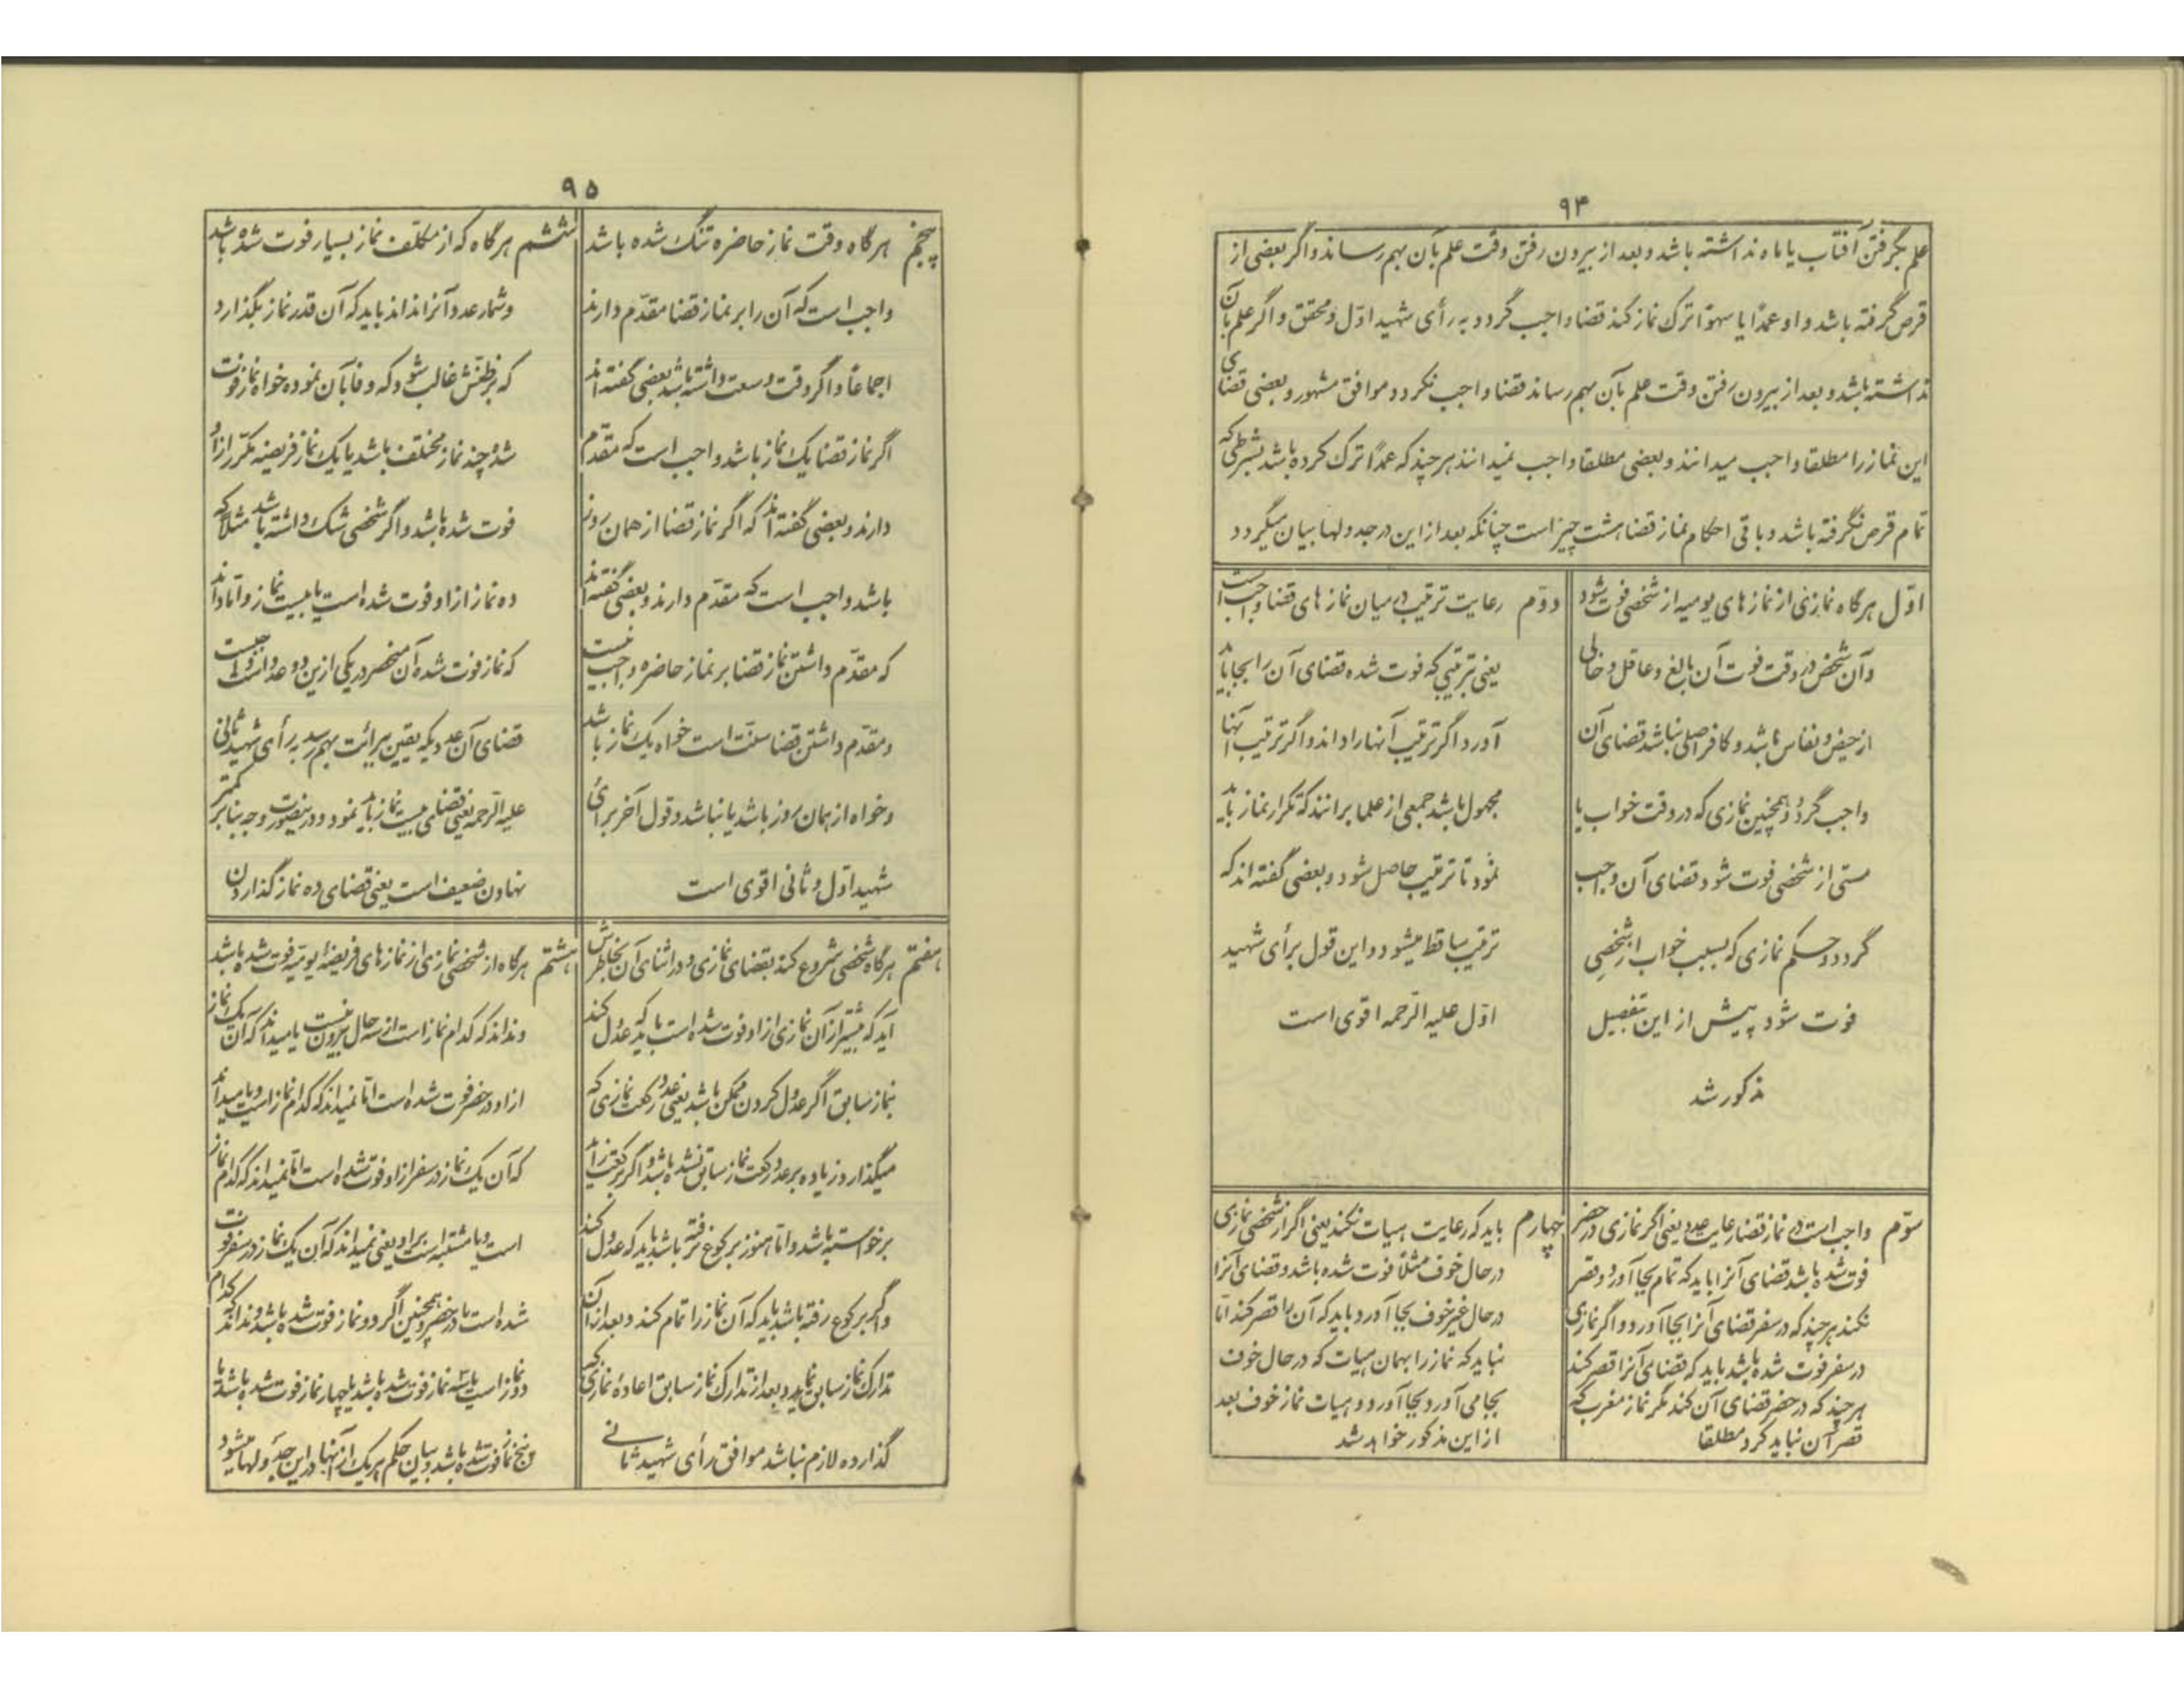 ۹۴
علم بگرفتن آفتاب یا ماه نداشته باشد و بعد از بیرون رفتن وقت علم بآن بهم رساند و اگر بعضی از
قرص گرفته باشد و او عمدًا یا سهوًا ترک نماز کند قضا واجب گردد به رأی شهید اوّل و محقق و اگر علم بآن
نداشته باشد و بعد از بیرون رفتن وقت علم بآن بهم رساند قضا واجب نگردد موافق مشهور و بعضی قضای
این نماز را مطلقا واجب میدانند و بعضی مطلقا واجب نمیدانند هر چند که عمدًا ترک کرده باشد بشرطی که
تمام قرص نگرفته باشد و باقی احکام نماز قضا هشت چیز است چنانکه بعد از این در جدولها بیان میگردد
اوّل هرگاه نمازی از نمازهای یومیه از شخصی فوت شود
وآن شخص در وقت فوت آن بالغ و عاقل و خالی
از حیض و نفاس باشد و کافر اصلی نباشد قضای آن
واجب گردد و همچنین نمازی که در وقت خواب یا
مستی از شخصی فوت شود قضای آن واجب
گردد و حکم نمازی که بسبب خواب از شخصی
فوت شود پیش از این بتفصیل
مذکور شد
دوّم رعایت ترتیب در میان نماز های قضا واجب است
یعنی بترتیبی که فوت شده قضای آن را بجا باید
آورد اگر ترتیب آنها را داند و اگر ترتیب آنها
مجهول باشد جمعی از علما برانند که تکرار نماز باید
نمود تا ترتیب حاصل شود و بعضی گفته اند که
ترتیب ساقط میشود و این قول برأی شهید
اوّل علیه الرّحمه اقوی است
سوّم واجب است در نماز قضا رعایت عدد یعنی اگر نمازی در حضر
فوت شده باشد قضای آنرا باید که تمام بجا آورد و قصر
نکند هر چند که در سفر قضای آنرا بجا آورد و اگر نمازی
در سفر فوت شده باشد باید که قضای آنرا قصر کند
هر چند که در حضر قضای آن کند مگر نماز مغرب که
قصر آن نباید کرد مطلقا
چهارم باید که رعایت هیات نکند یعنی اگر از شخصی نمازی
در حال خوف مثلًا فوت شده باشد و قضای آنرا
در حال غیر خوف بجا آورد باید که آن را قصر کند امّا
نباید که نماز را بهمان هیات که در حال خوف
بجا می آورد بجا آورد و هیات نماز خوف بعد
از این مذکور خواهد شد
۹۵
پنجم هرگاه وقت نماز حاضره تنگ شده باشد
واجب است که آن را بر نماز قضا مقدّم دارند
اجماعًا و اگر وقت وسعت داشته باشد بعضی گفته اند
اگر نماز قضا یک نماز باشد واجب است که مقدّم
دارند و بعضی گفته اند که اگر نماز قضا از همان روز
باشد واجب است که مقدّم دارند و بعضی گفته اند
که مقدّم داشتن نماز قضا بر نماز حاضره واجب نیست
و مقدّم داشتن قضا سنّت است خواه یک نماز باشد
و خواه از همان روز باشد یا نباشد و قول آخر برأی
شهید اوّل و ثانی اقوی است
ششم هرگاه که از مکلّف نماز بسیار فوت شده باشد
و شمار عدد آنرا نداند باید که آن قدر نماز بگذارد
که بر ظنّش غالب شود که وفا بآن نموده خواه نماز فوت
شده چند نماز مختلف باشد یا یک نماز فریضه مکرّر از او
فوت شده باشد و اگر شخصی شک داشته باشد مثلًا که
ده نماز از او فوت شده است یا بیست نماز و امّا داند
که نماز فوت شده آن منحصر در یکی ازین دو عدد است واجبست
قضای آن عددیکه یقین ببرائت بهم رسد برأی شهید ثانی
علیه الرّحمه یعنی قضای بیست نماز باید نمود و درینصورت وجه بنا بر کمتر
نهادن ضعیف است یعنی قضای ده نماز گذاردن
هفتم هرگاه شخصی شروع کند بقضای نمازی و در اثنای آن بخاطرش
آید که بیشتر از آن نمازی از او فوت شده است باید که عدول کند
بنماز سابق اگر عدول کردن ممکن باشد یعنی عدد رکعت نمازی که
میگذارد زیاده بر عدد رکعت نماز سابق نشده باشد و اگر برکعت زائد
برخواسته باشد و امّا هنوز برکوع نرفته باشد باید که عدول کند
و اگر برکوع رفته باشد باید که آن نماز را تمام کند و بعد از آن
تدارک نماز سابق نماید و بعد از تدارک نماز سابق اعادهٔ نمازی که
گذارده لازم نباشد موافق رأی شهید ثانی
هشتم هرگاه از شخصی نمازی از نمازهای فریضه یومیّه فوت شده باشد
و نداند که کدام نماز است از سه حال بیرون نیست یا میداند که آن یک نماز
از او در حضر فوت شده است امّا نمیداند که کدام نماز است و یا میداند
که آن یک نماز در سفر از او فوت شده است امّا نمیداند که کدام نماز
است و یا مشتبه است بر او یعنی نمیداند که آن یک نماز در سفر فوت
شده است یا در حضر و همچنین اگر دو نماز فوت شده باشد و نداند که کدام
دو نماز است یا سه نماز فوت شده باشد یا چهار نماز فوت شده باشد یا
پنج نماز فوت شده باشد و بیان حکم هر یک از آنها در این جدولها میشود